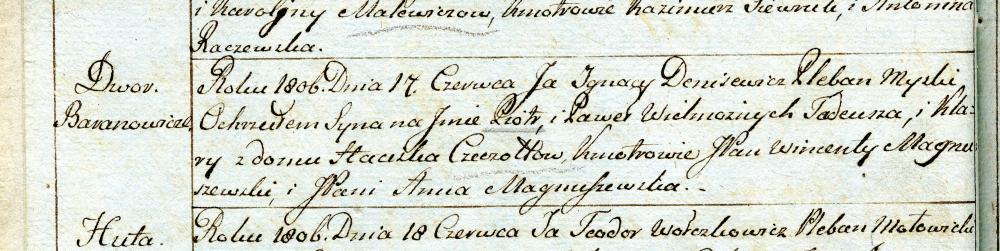 i Karoliny Malewiczow, Kmotrowie Kazimierz i Antonina
Raczewska.
Dwor.
Baranowicze
Roku 1806. Dnia 17. Czerwca Ja Ignacy Denisewicz Pleban Myski
Ochrzciłem Syna na Jmie Piotr, i Paweł Wielmożnych Tadeusza, i Kla-
ry z domu Haciska Czeczottow, Kmotrowie JPan Wincenty Magnu
szewski, i JPani Anna Magnuszewska. -
Huta.
Roku 1806. Dnia 18 Czerwca Ja Teodor Wołczkowicz Pleban